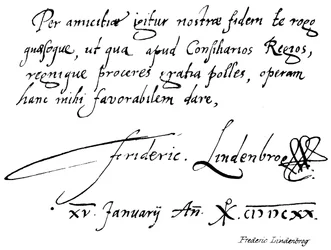 Per amicitiæ igitur nostræ fidem te rogo
quæsoque, ut qua apud Consiliarios Regios,
regnique proceres gratia polles, operam
hanc mihi favorabilem dare,
Frideric. Lindenbrog
XV. Januarij Añ. CIↃIↃCXX.
Frederic Lindenbrog